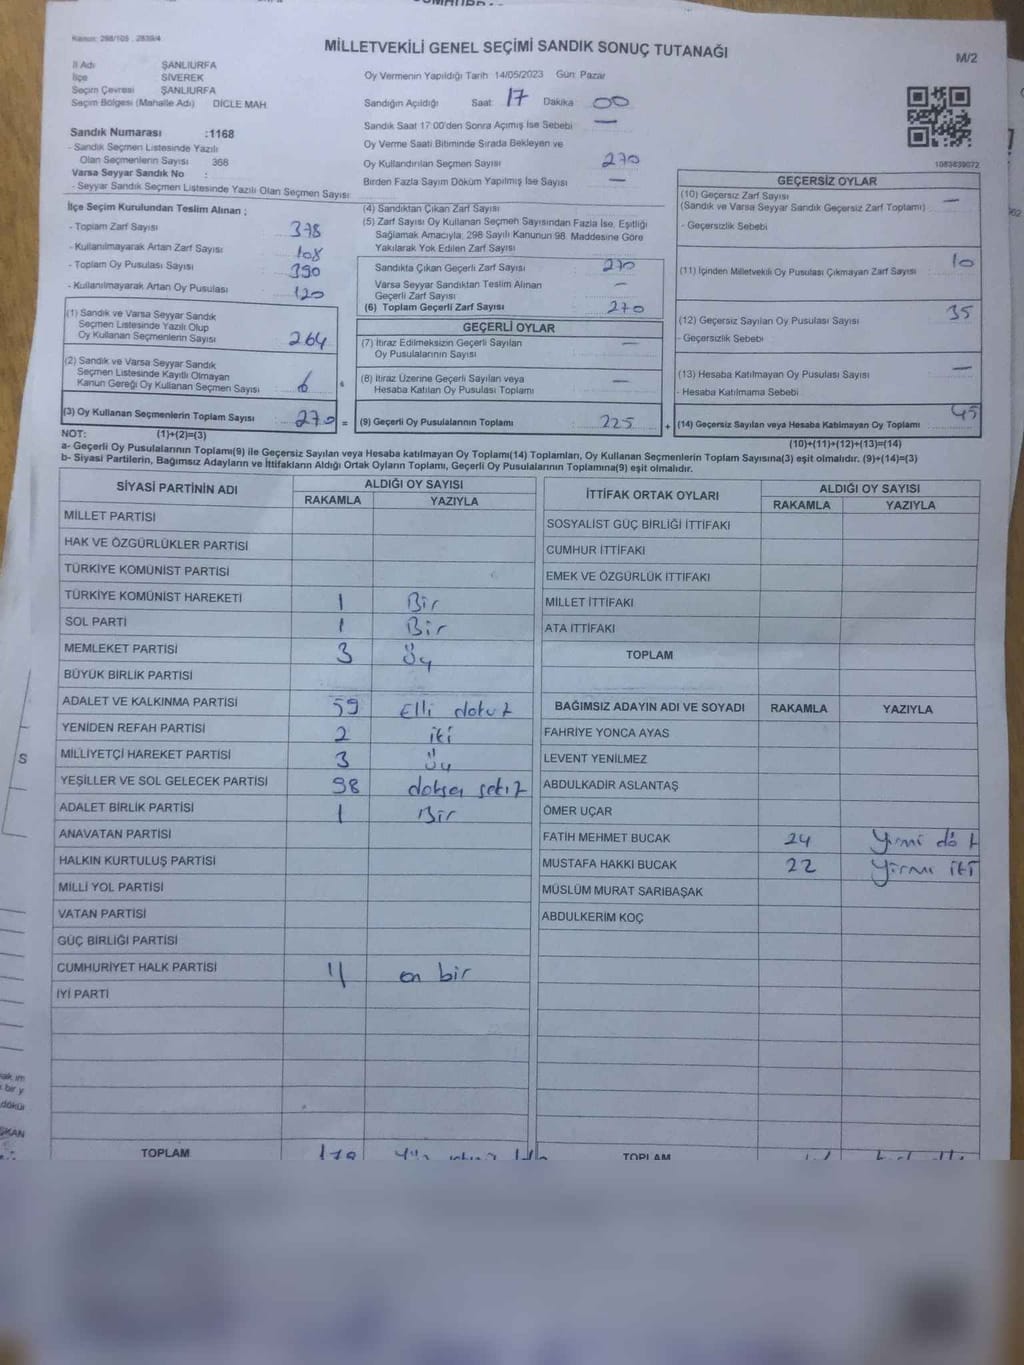 Kanun: 298/105 , 2839/4
MİLLETVEKİLİ GENEL SEÇİMİ SANDIK SONUÇ TUTANAĞI
M/2
İl Adı ŞANLIURFA
İlçe SİVEREK
Seçim Çevresi ŞANLIURFA
Seçim Bölgesi (Mahalle Adı) DİCLE MAH
Oy Vermenin Yapıldığı Tarih 14/05/2023 Gün: Pazar
Sandığın Açıldığı Saat: 17 Dakika 00
Sandık Saat 17:00'den Sonra Açımış İse Sebebi —
Oy Verme Saati Bitiminde Sırada Bekleyen ve
Oy Kullandırılan Seçmen Sayısı 270
Birden Fazla Sayım Döküm Yapılmış İse Sayısı —
Sandık Numarası :1168
- Sandık Seçmen Listesinde Yazılı
Olan Seçmenlerin Sayısı 368
Varsa Seyyar Sandık No :
- Seyyar Sandık Seçmen Listesinde Yazılı Olan Seçmen Sayısı
1083839072
İlçe Seçim Kurulundan Teslim Alınan ;
- Toplam Zarf Sayısı 378
- Kullanılmayarak Artan Zarf Sayısı 108
- Toplam Oy Pusulası Sayısı 390
- Kullanılmayarak Artan Oy Pusulası 120
(1) Sandık ve Varsa Seyyar Sandık
Seçmen Listesinde Yazılı Olup
Oy Kullanan Seçmenlerin Sayısı 264
(2) Sandık ve Varsa Seyyar Sandık
Seçmen Listesinde Kayıtlı Olmayan
Kanun Gereği Oy Kullanan Seçmen Sayısı 6
(3) Oy Kullanan Seçmenlerin Toplam Sayısı 270 =
(4) Sandıktan Çıkan Zarf Sayısı
(5) Zarf Sayısı Oy Kullanan Seçmen Sayısından Fazla İse, Eşitliği
Sağlamak Amacıyla; 298 Sayılı Kanunun 98. Maddesine Göre
Yakılarak Yok Edilen Zarf Sayısı
Sandıkta Çıkan Geçerli Zarf Sayısı 270
Varsa Seyyar Sandıktan Teslim Alınan
Geçerli Zarf Sayısı —
(6) Toplam Geçerli Zarf Sayısı 270
GEÇERLİ OYLAR
(7) İtiraz Edilmeksizin Geçerli Sayılan
Oy Pusulalarının Sayısı —
(8) İtiraz Üzerine Geçerli Sayılan veya
Hesaba Katılan Oy Pusulası Toplamı —
(9) Geçerli Oy Pusulalarının Toplamı 225 +
GEÇERSİZ OYLAR
(10) Geçersiz Zarf Sayısı
(Sandık ve Varsa Seyyar Sandık Geçersiz Zarf Toplamı) —
- Geçersizlik Sebebi
(11) İçinden Milletvekili Oy Pusulası Çıkmayan Zarf Sayısı 10
(12) Geçersiz Sayılan Oy Pusulası Sayısı 35
- Geçersizlik Sebebi
(13) Hesaba Katılmayan Oy Pusulası Sayısı —
- Hesaba Katılmama Sebebi
(14) Geçersiz Sayılan veya Hesaba Katılmayan Oy Toplamı 45
NOT: (1)+(2)=(3)
(10)+(11)+(12)+(13)=(14)
a- Geçerli Oy Pusulalarının Toplamı(9) ile Geçersiz Sayılan veya Hesaba katılmayan Oy Toplamı(14) Toplamları, Oy Kullanan Seçmenlerin Toplam Sayısına(3) eşit olmalıdır. (9)+(14)=(3)
b- Siyasi Partilerin, Bağımsız Adayların ve İttifakların Aldığı Ortak Oyların Toplamı, Geçerli Oy Pusulalarının Toplamına(9) eşit olmalıdır.
SİYASİ PARTİNİN ADI ALDIĞI OY SAYISI
RAKAMLA YAZIYLA
MİLLET PARTİSİ
HAK VE ÖZGÜRLÜKLER PARTİSİ
TÜRKİYE KOMÜNİST PARTİSİ
TÜRKİYE KOMÜNİST HAREKETİ 1 Bir
SOL PARTİ 1 Bir
MEMLEKET PARTİSİ 3 Üç
BÜYÜK BİRLİK PARTİSİ
ADALET VE KALKINMA PARTİSİ 59 Elli dokuz
YENİDEN REFAH PARTİSİ 2 iki
MİLLİYETÇİ HAREKET PARTİSİ 3 Üç
YEŞİLLER VE SOL GELECEK PARTİSİ 98 doksan sekiz
ADALET BİRLİK PARTİSİ 1 Bir
ANAVATAN PARTİSİ
HALKIN KURTULUŞ PARTİSİ
MİLLİ YOL PARTİSİ
VATAN PARTİSİ
GÜÇ BİRLİĞİ PARTİSİ
CUMHURİYET HALK PARTİSİ 11 on bir
İYİ PARTİ
TOPLAM 179
İTTİFAK ORTAK OYLARI ALDIĞI OY SAYISI
RAKAMLA YAZIYLA
SOSYALİST GÜÇ BİRLİĞİ İTTİFAKI
CUMHUR İTTİFAKI
EMEK VE ÖZGÜRLÜK İTTİFAKI
MİLLET İTTİFAKI
ATA İTTİFAKI
TOPLAM
BAĞIMSIZ ADAYIN ADI VE SOYADI RAKAMLA YAZIYLA
FAHRİYE YONCA AYAS
LEVENT YENİLMEZ
ABDULKADİR ASLANTAŞ
ÖMER UÇAR
FATİH MEHMET BUCAK 24 Yirmi dört
MUSTAFA HAKKI BUCAK 22 Yirmi iki
MÜSLÜM MURAT SARIBAŞAK
ABDULKERİM KOÇ
TOPLAM